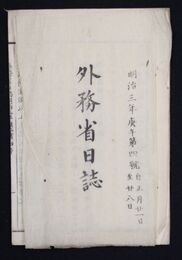 明治三年庚午第四號自正月廿一日
至廿八日
外務省日誌